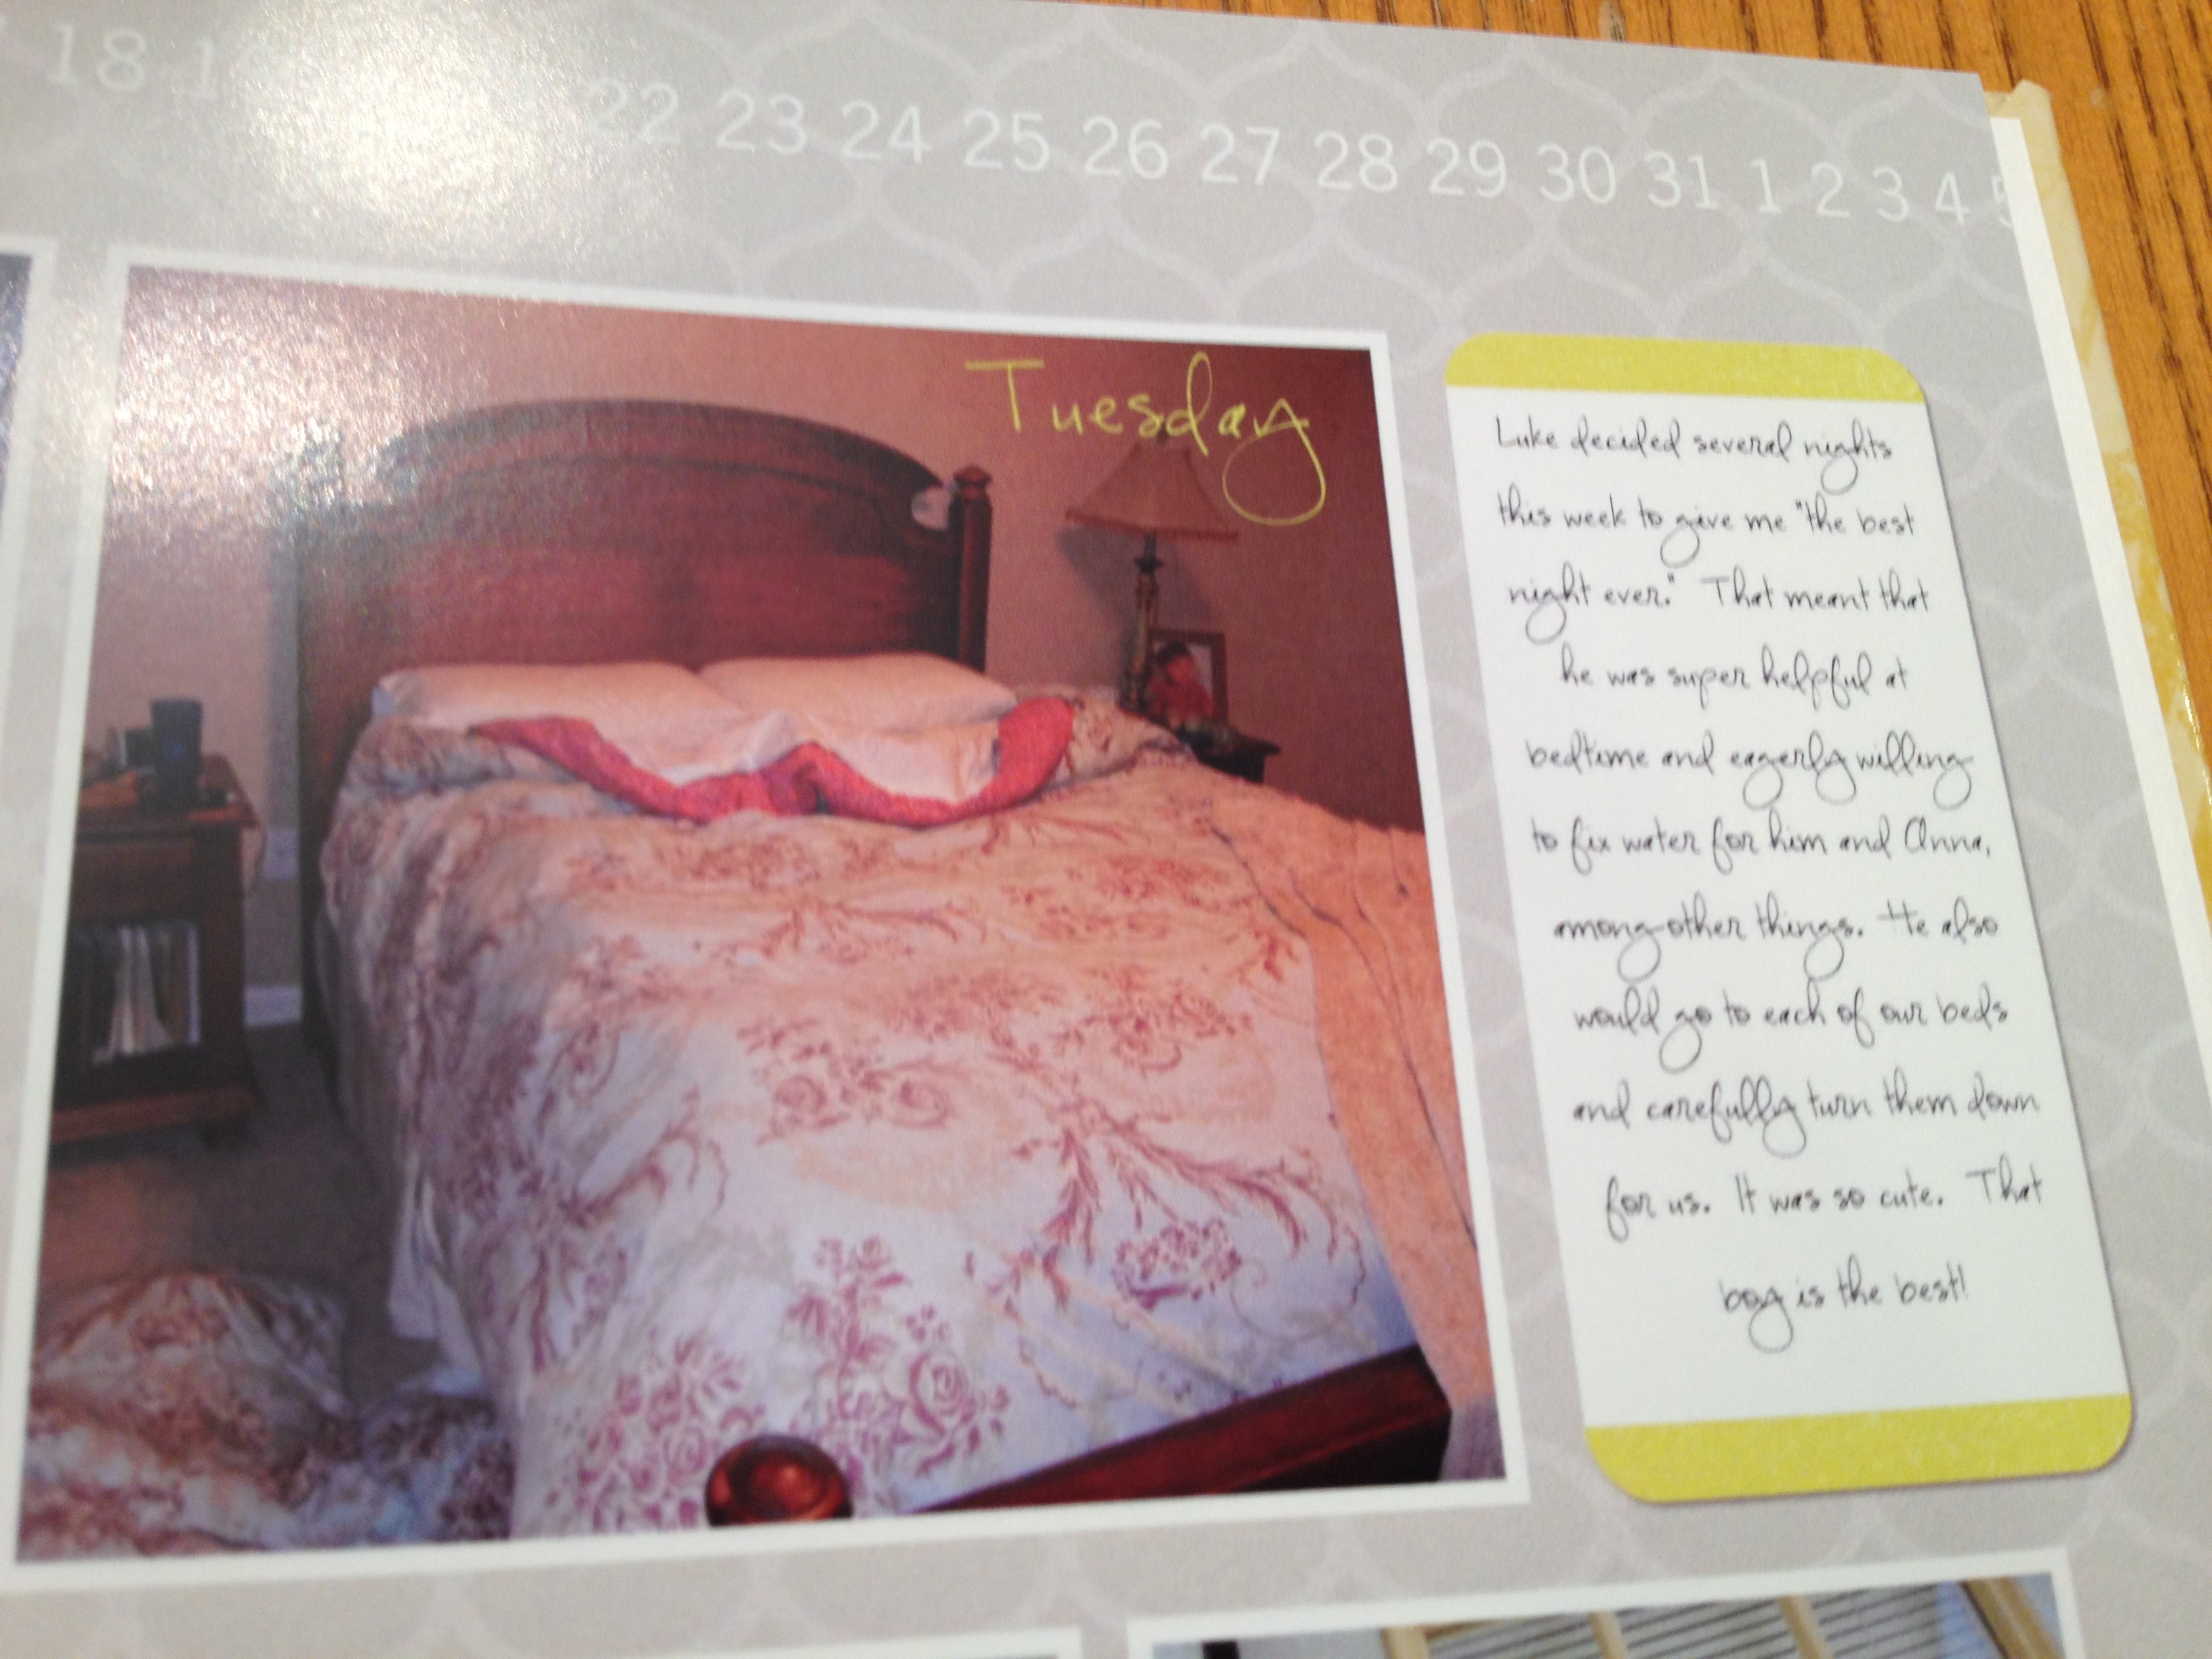 18 22 23 24 25 26 27 28 29 30 31 1 2 3 4
Tuesday
Luke decided several nights
this week to give me "the best
night ever." That meant that
he was super helpful at
bedtime and eagerly willing
to fix water for him and Anna,
among other things. He also
would go to each of our beds
and carefully turn them down
for us. It was so cute. That
boy is the best!